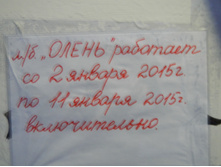 л/б. „ОЛЕНЬ" работает
со 2 января 2015г.
по 11 января 2015г.
включительно.